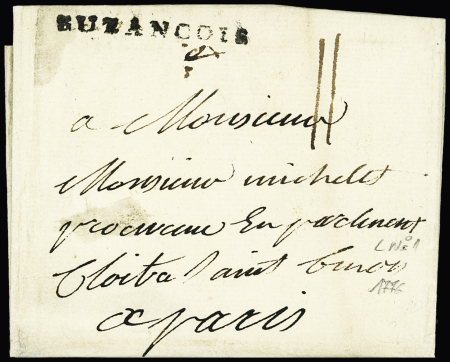 BUZANCOIS
11
a Monsieur
Monsieur michelet
procureur En parlement
Cloitre Saint benois
a paris
1776